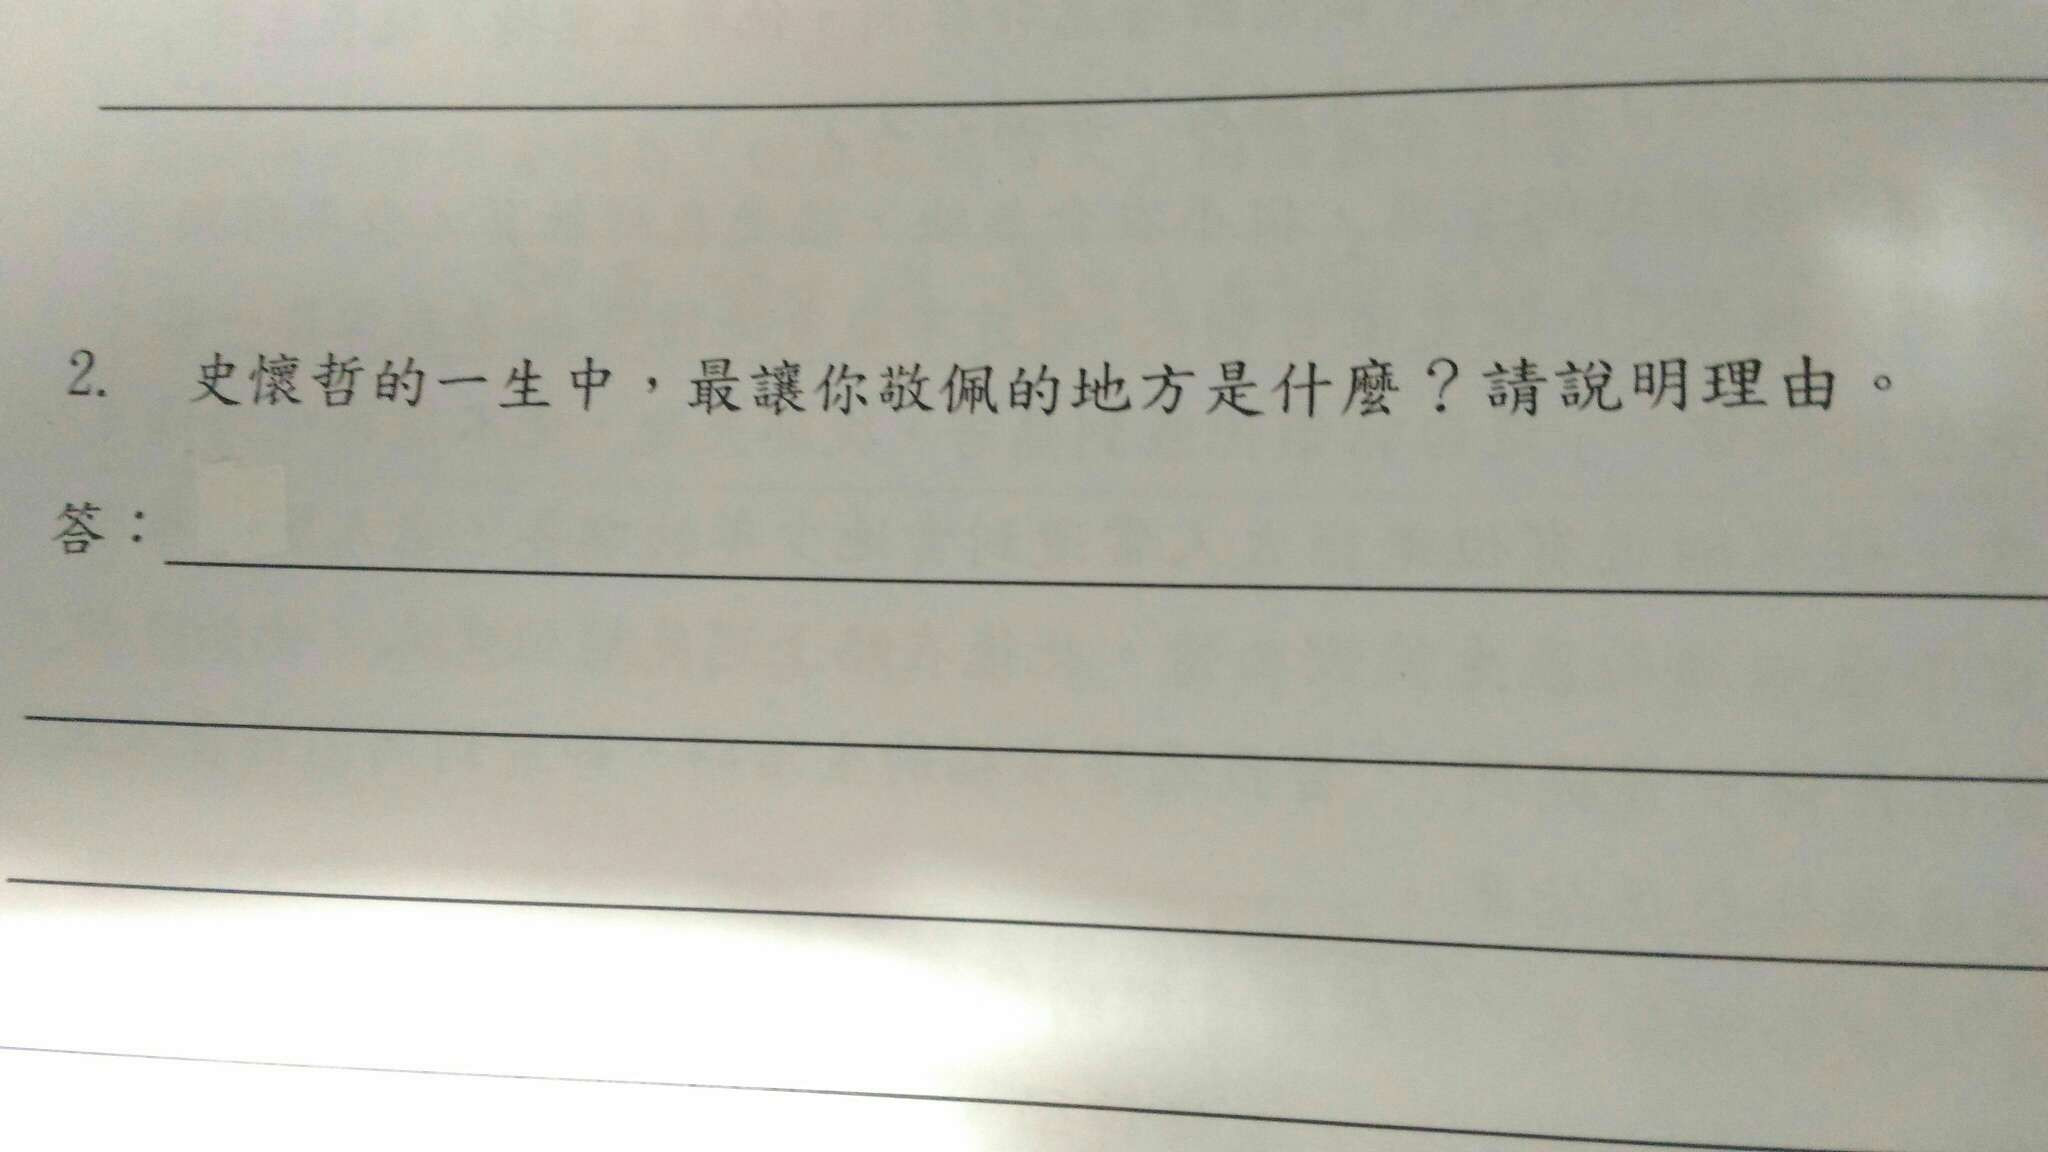 2. 史懷哲的一生中，最讓你敬佩的地方是什麼？請說明理由。
答：